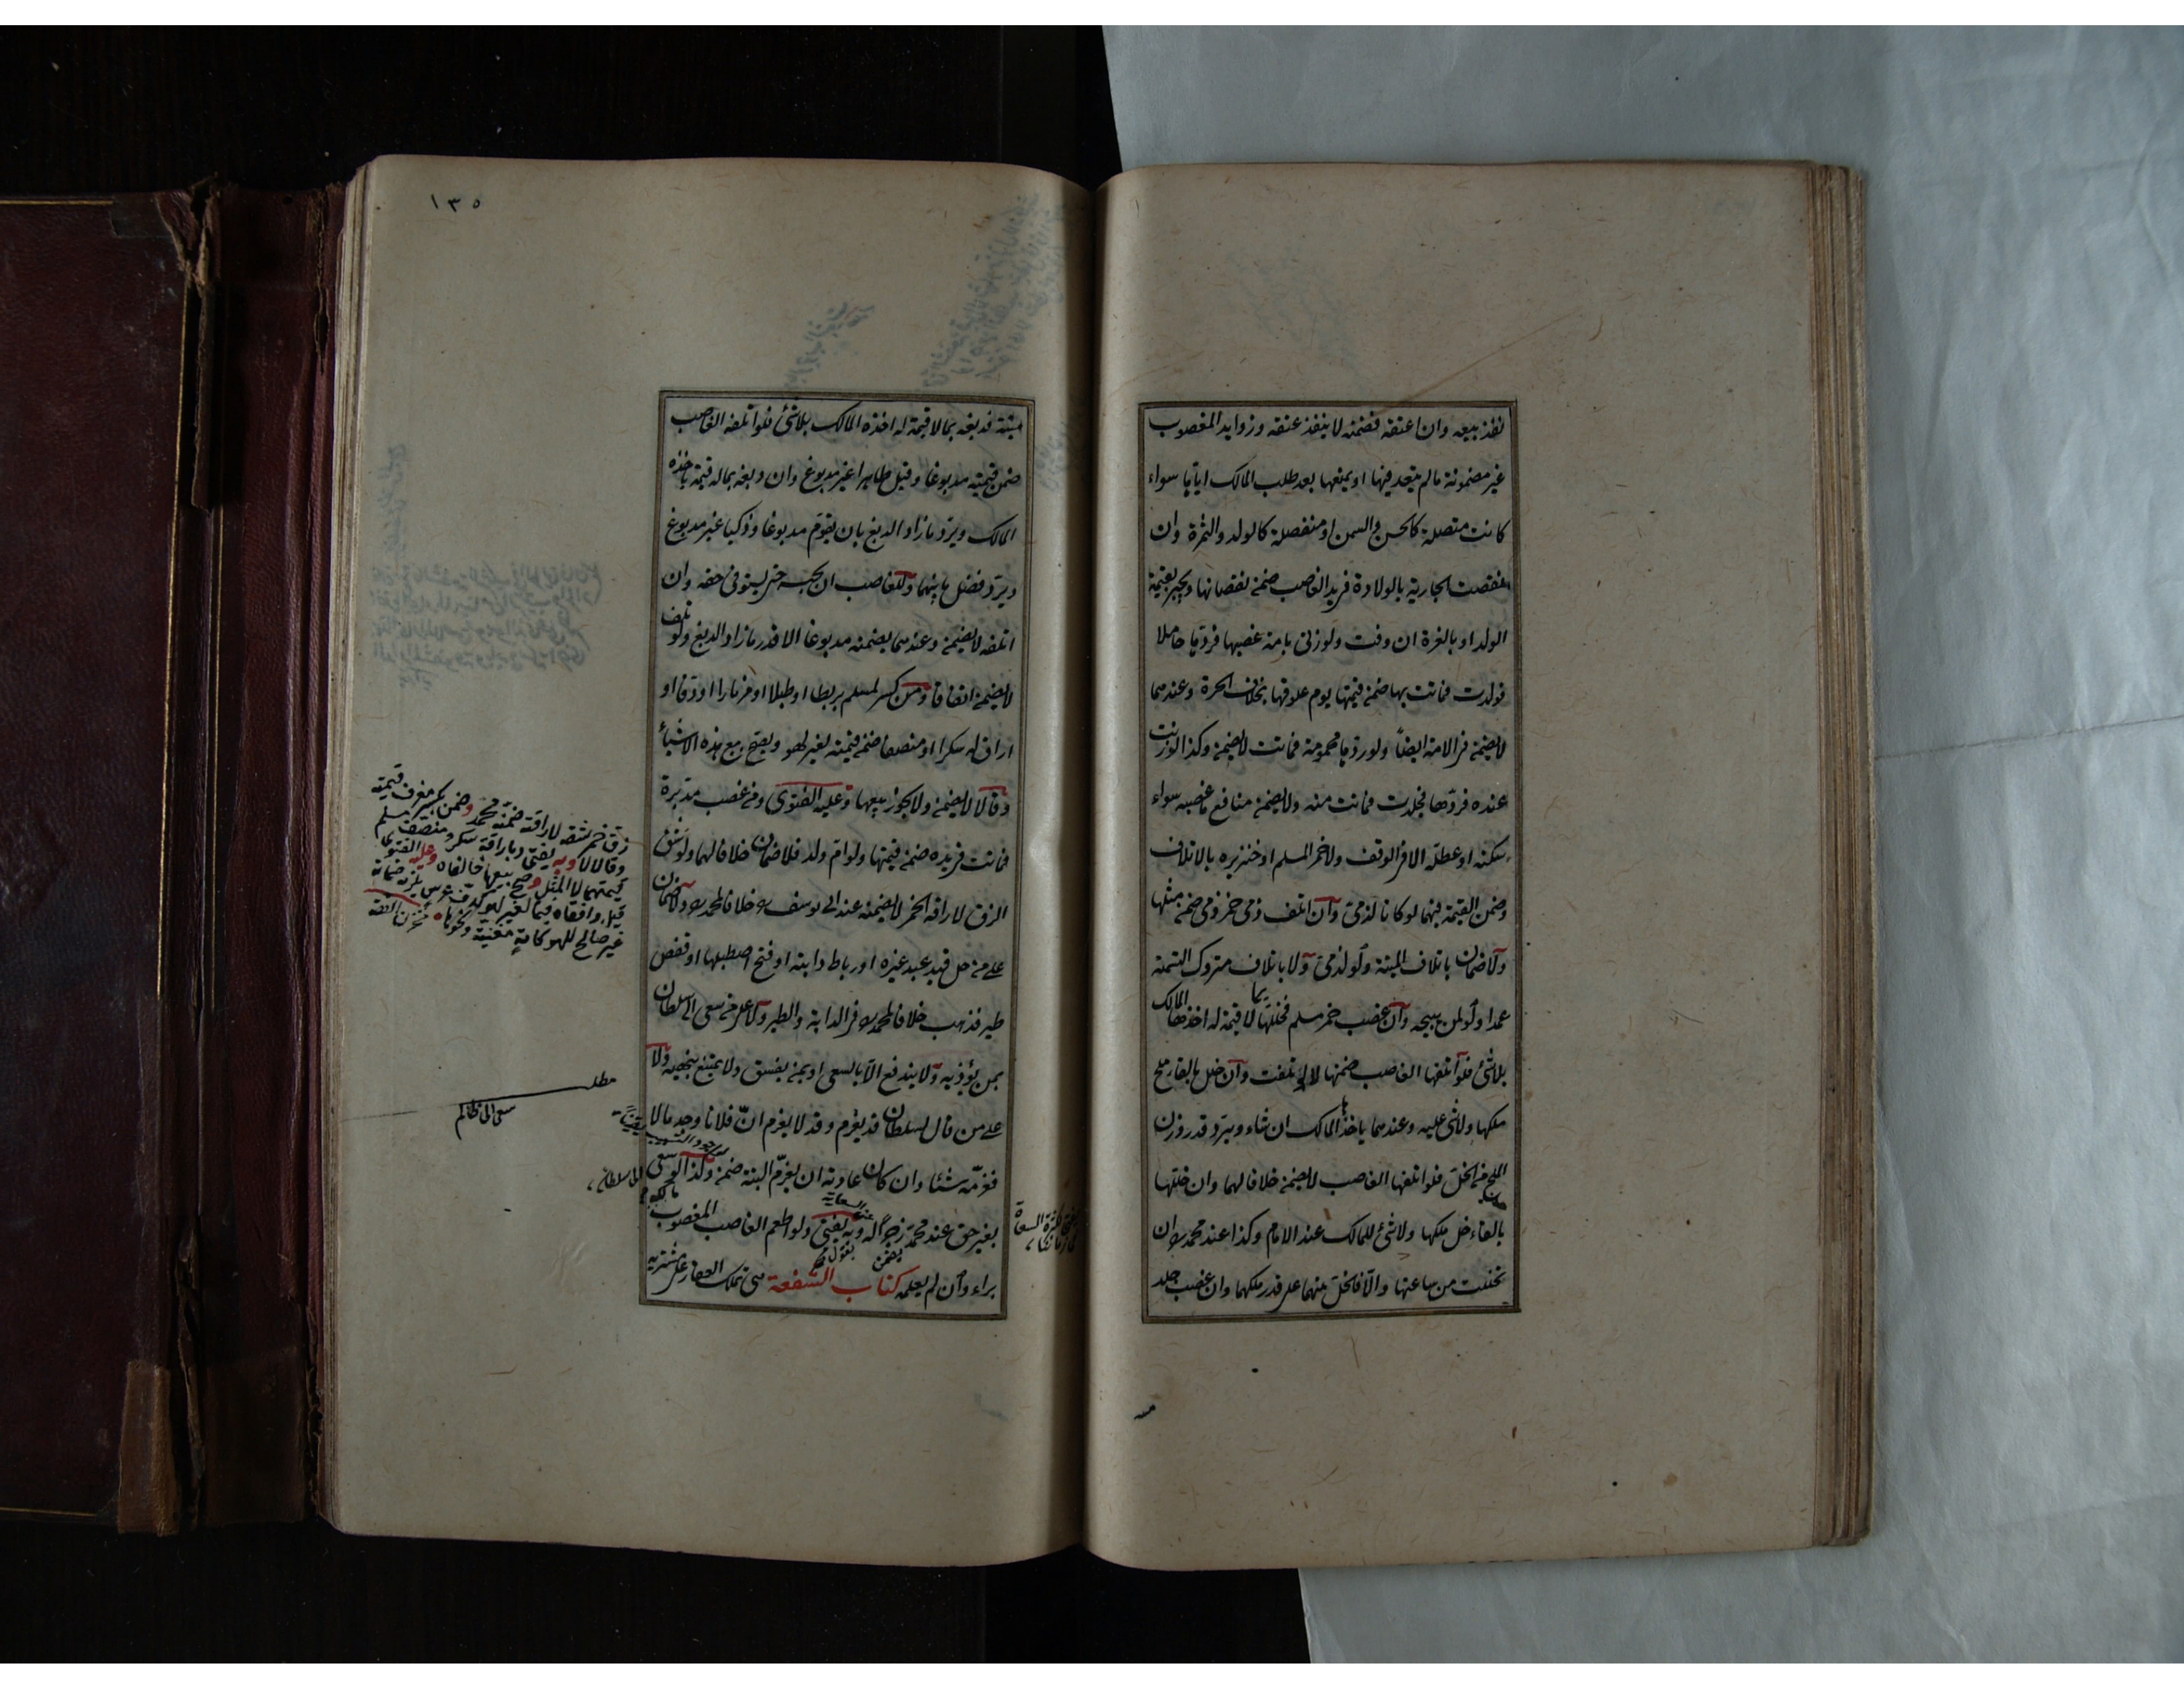 نفذ بيعه وان اعتقه فضمنه لا ينفذ عتقه وزوايد المغصوب
غير مضمونة مالم يتعد فيها او يمنعها بعد طلب المالك اياها سواء
كانت متصلة كالحسن والسمن او منفصلة كالولد والثمرة وان
انتقصت الجارية بالولادة في يد الغاصب ضمن نقصانها ويجبر بقيمة
الولد او بالغرة ان وفت ولو زنى بامة غصبها فردها حاملا
فولدت فماتت بها ضمن قيمتها يوم علوقها بخلاف الحرة وعندهما
لا يضمن في الامة ايضا ولو ردها محمومة فماتت لا يضمن وكذا لو زنت
عنده فردها فجلدت فماتت منه ولا يضمن منافع ما غصبه سواء
سكنه او عطله الا في الوقف ولا خمر المسلم او خنزيره بالاتلاف
وضمن القيمة فيهما لو كانا لذمي وان اتلف ذمي خمر ذمي ضمن مثلها
ولا ضمان باتلاف الميتة ولو لذمي ولا باتلاف متروك التسمية
عمدا ولو لمن يبيحه وان غصب خمر مسلم فخللها بما لا قيمة له اخذها المالك
بلا شئ فلو اتلفها الغاصب ضمنها لا لو تلفت وان خللها بالقاء ملح
ملكها ولا شئ عليه وعندهما ياخذها المالك ان شاء ويرد قدر وزن
الملح من الخل فلو اتلفها الغاصب لا يضمن خلافا لهما وان خللها
بالقاء خل ملكها ولا شئ للمالك عند الامام وكذا عند محمد ان
تخللت من ساعتها والا فالخل بينهما على قدر ملكهما وان غصب جلد
١٣٥
ميتة فدبغه بما لا قيمة له اخذه المالك بلا شئ فلو اتلفه الغاصب
ضمن قيمته مدبوغا وقيل طاهرا غير مدبوغ وان دبغه بماله قيمة ياخذه
المالك ويرد ما زاد الدبغ بان يقوم مدبوغا وذكيا غير مدبوغ
ويرد فضل ما بينهما وللغاصب ان يحبسه حتى يستوفى حقه وان
اتلفه لا يضمن وعندهما يضمنه مدبوغا الا قدر ما زاد الدبغ ولو تلف
لا يضمن اتفاقا ومن كسر لمسلم بربطا او طبلا او مزمارا او دفا او
اراق له سكرا او منصفا ضمن قيمته لغير لهو ويصح بيع هذه الاشياء
وقالا لا يضمن ولا يجوز بيعها وعليه الفتوى ومن غصب مدبرة
فماتت في يده ضمن قيمتها ولو ام ولد فلا ضمان خلافا لهما ولو شق
الزق لاراقة الخمر لا يضمنه عند ابى يوسف خلافا لمحمد ولا ضمان
على من حل قيد عبد غيره او رباط دابته او فتح اصطبلها او قفص
طير فذهب خلافا لمحمد في الدابة والطير ولا على من سعى الى السلطان
بمن يؤذيه ولا يندفع الا بالسعى او بمن يفسق ولا يمتنع بنهيه ولا
على من قال لسلطان قد يغرم وقد لا يغرم ان فلانا وجد مالا
فغرمه شئا وان كان عادته ان يغرم البتة ضمن وكذا لو سعى
بغير حق عند محمد زجرا له وبه يفتى ولو اطعم الغاصب المغصوب مالكه
براء وان لم يعلمه كتاب الشفعة هى تملك العقار على مشتريه
زق خمر شقه لاراقته ضمنه محمد وضمن بكسر معزف قيمته
وقالا لا وبه يفتى وباراقة سكر ومنصف
قيمتهما لا المثل وصح بيعها خالفاه وعليه الفتوى
غير صالح للهو كامة مغنية ونحوها
مطلب
سعى الى ظالم